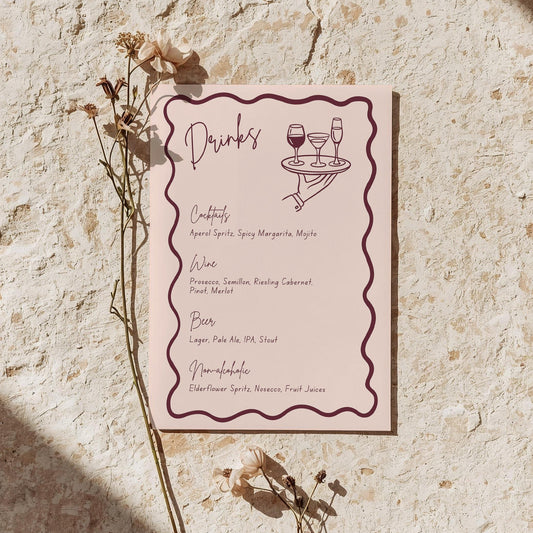 Drinks
Cocktails
Aperol Spritz, Spicy Margarita, Mojito
Wine
Prosecco, Semillon, Riesling Cabernet,
Pinot, Merlot
Beer
Lager, Pale Ale, IPA, Stout
Non-alcoholic
Elderflower Spritz, Nosecco, Fruit Juices